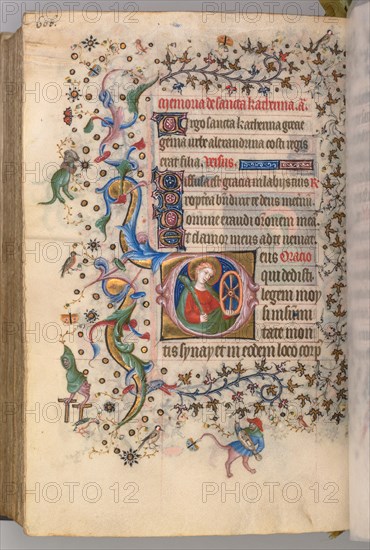 memoria de sancta katherina. a.
Virgo sancta katherina grecie
gemma urbe alexandrina costi regis
erat filia. versus.
Diffusa est gracia in labiis tuis R
propterea bndixit te deus in eternū
Domine exaudi orationem mea
Et clamor meus ad te veniat
Deus Oracio
qui dedisti
legem moy
si in summi
tate mon
tis synay et in eodem loco corp